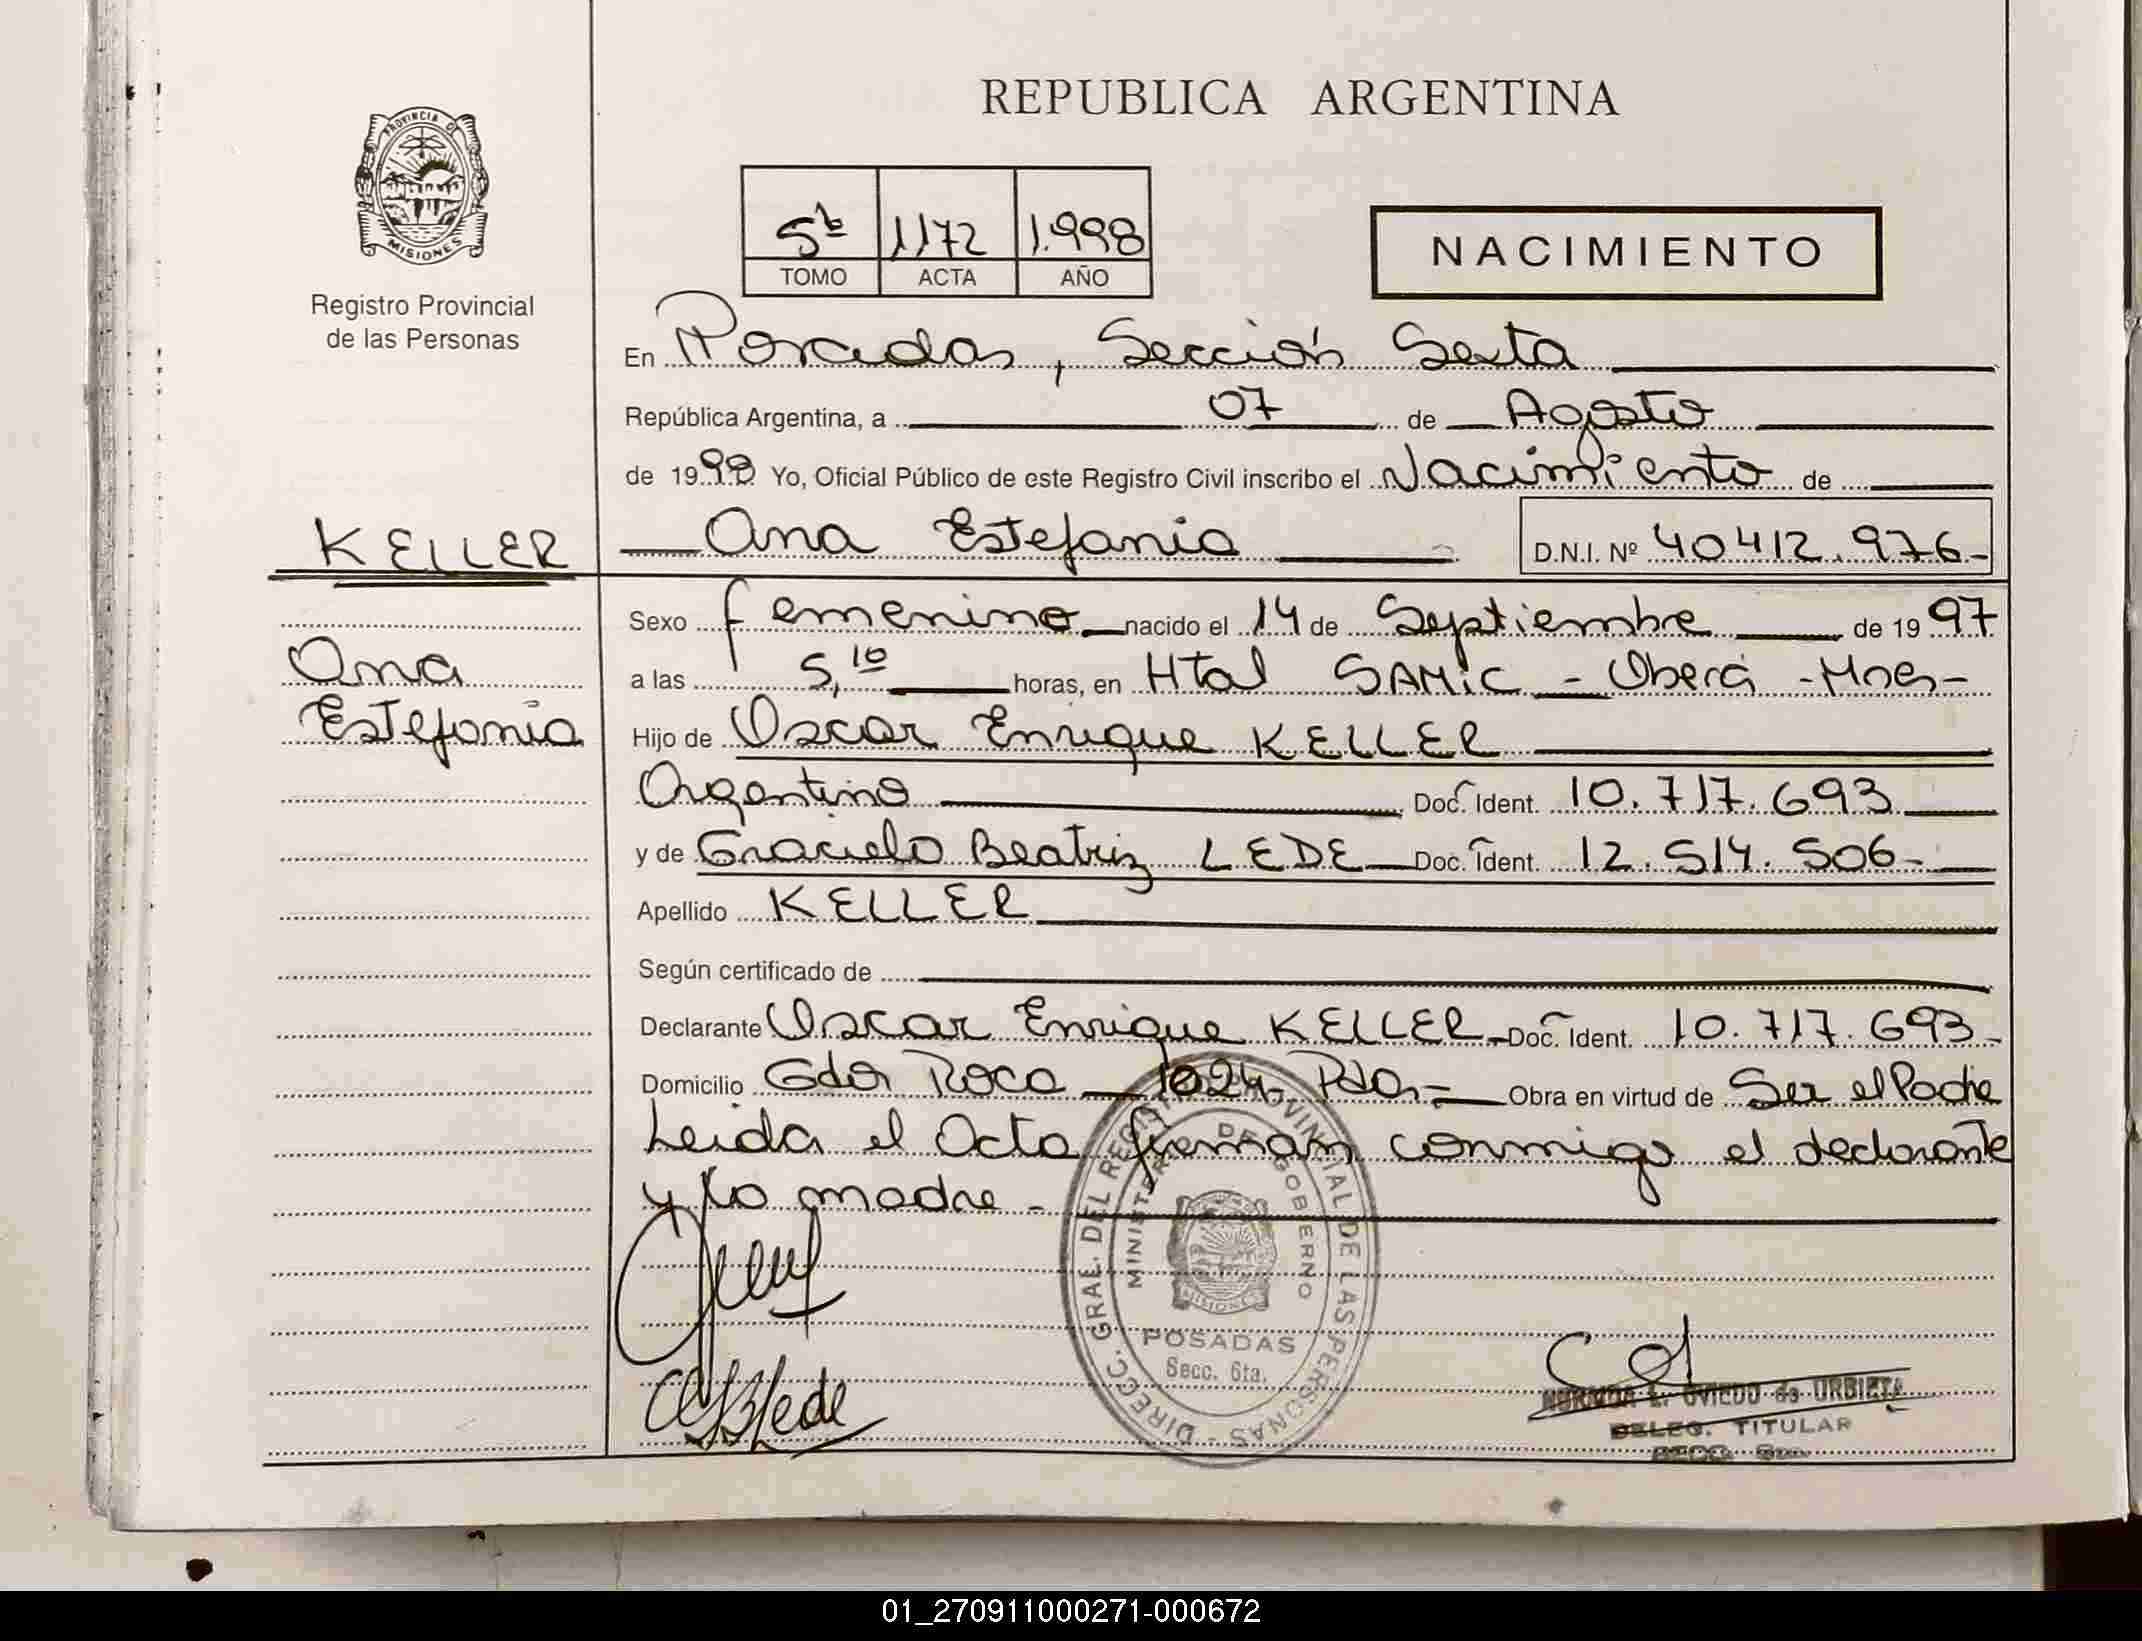 REPUBLICA ARGENTINA
PROVINCIA DE
MISIONES
Registro Provincial
de las Personas
5b 1172 1.998
TOMO ACTA AÑO
NACIMIENTO
En Posadas, Sección Sexta
República Argentina, a 07 de Agosto
de 1998 Yo, Oficial Público de este Registro Civil inscribo el Nacimiento de
KELLER
Ana Estefania D.N.I. Nº 40412.976-
Ana
Estefania
Sexo femenino nacido el 14 de Septiembre de 1997
a las 5,10 horas, en Htal SAMIC - Oberá - Mnes-
Hijo de Oscar Enrique KELLER
Argentino Doc. Ident. 10.717.693
y de Graciela Beatriz LEDE Doc. Ident. 12.514.506-
Apellido KELLER
Según certificado de
Declarante Oscar Enrique KELLER Doc. Ident. 10.717.693-
Domicilio Gdor Roca 1024 Pdas- Obra en virtud de Ser el Padre
Leida el Acta firman conmigo el declarante
y la madre -
DIRECC. GRAL. DEL REGISTRO PROVINCIAL DE LAS PERSONAS
MINISTERIO DE GOBIERNO
MISIONES
POSADAS
Secc. 6ta.
GBLede
NORMA E. OVIEDO de URBIETA
DELEG. TITULAR
01_270911000271-000672